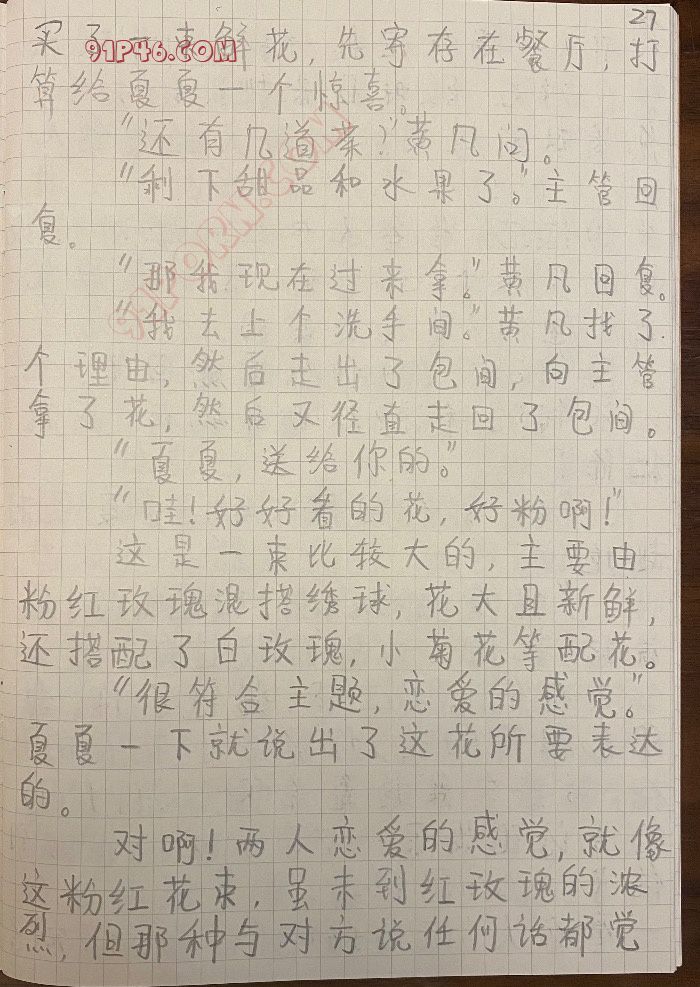 27
买了一束鲜花,先寄存在餐厅,打
91P46.COM
算给夏夏一个惊喜。
“还有几道菜?”黄凡问。
“剩下甜品和水果了。”主管回
复。
“那我现在过来拿。”黄凡回复。
“我去上个洗手间。”黄凡找了
个理由,然后走出了包间,向主管
拿了花,然后又径直走回了包间。
“夏夏,送给你的。”
“哇!好好看的花,好粉啊!”
这是一束比较大的,主要由
粉红玫瑰混搭绣球,花大且新鲜,
还搭配了白玫瑰,小菊花等配花。
“很符合主题,恋爱的感觉。”
夏夏一下就说出了这花所要表达
的。
对啊!两人恋爱的感觉,就像
这粉红花束,虽未到红玫瑰的浓
烈,但那种与对方说任何话都觉